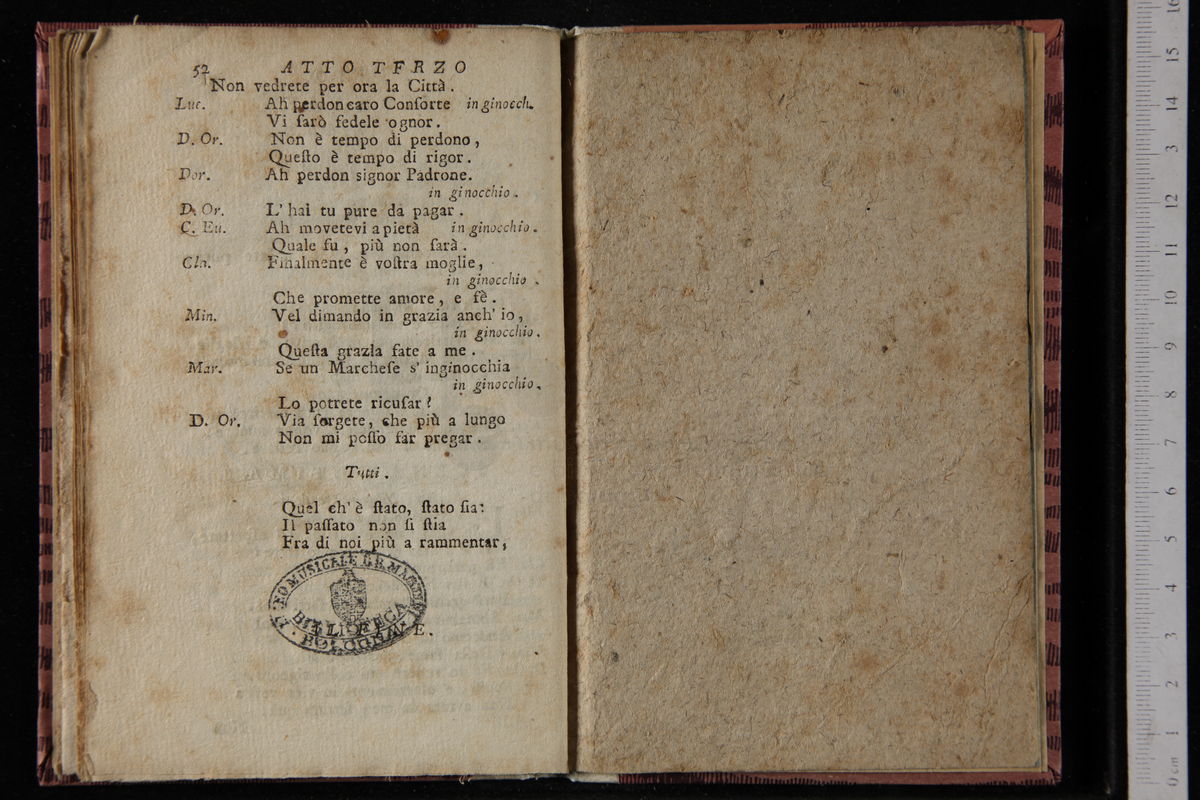 52 ATTO TFRZO
Non vedrete per ora la Città.
Luc. Ah perdon caro Conſorte in ginocch.
Vi ſarò fedele ognor.
D. Or. Non è tempo di perdono,
Queſto è tempo di rigor.
Dor. Ah perdon signor Padrone.
in ginocchio.
D. Or. L' hai tu pure da pagar.
C. Eu. Ah movetevi a pietà in ginocchio.
Quale fu, più non ſarà.
Cla. Finalmente è voſtra moglie,
in ginocchio.
Che promette amore, e fè.
Min. Vel dimando in grazia anch' io,
in ginocchio.
Queſta grazia fate a me.
Mar. Se un Marcheſe s' inginocchia
in ginocchio.
Lo potrete ricuſar?
D. Or. Via ſorgete, che più a lungo
Non mi poſſo far pregar.
Tutti.
Quel ch' è ſtato, ſtato ſia:
Il paſſato non ſi ſtia
Fra di noi più a rammentar,
MUSICALE G.B. MARTINI
BIBLIOTECA
E.
0 cm 1 2 3 4 5 6 7 8 9 10 11 12 3 14 15 16